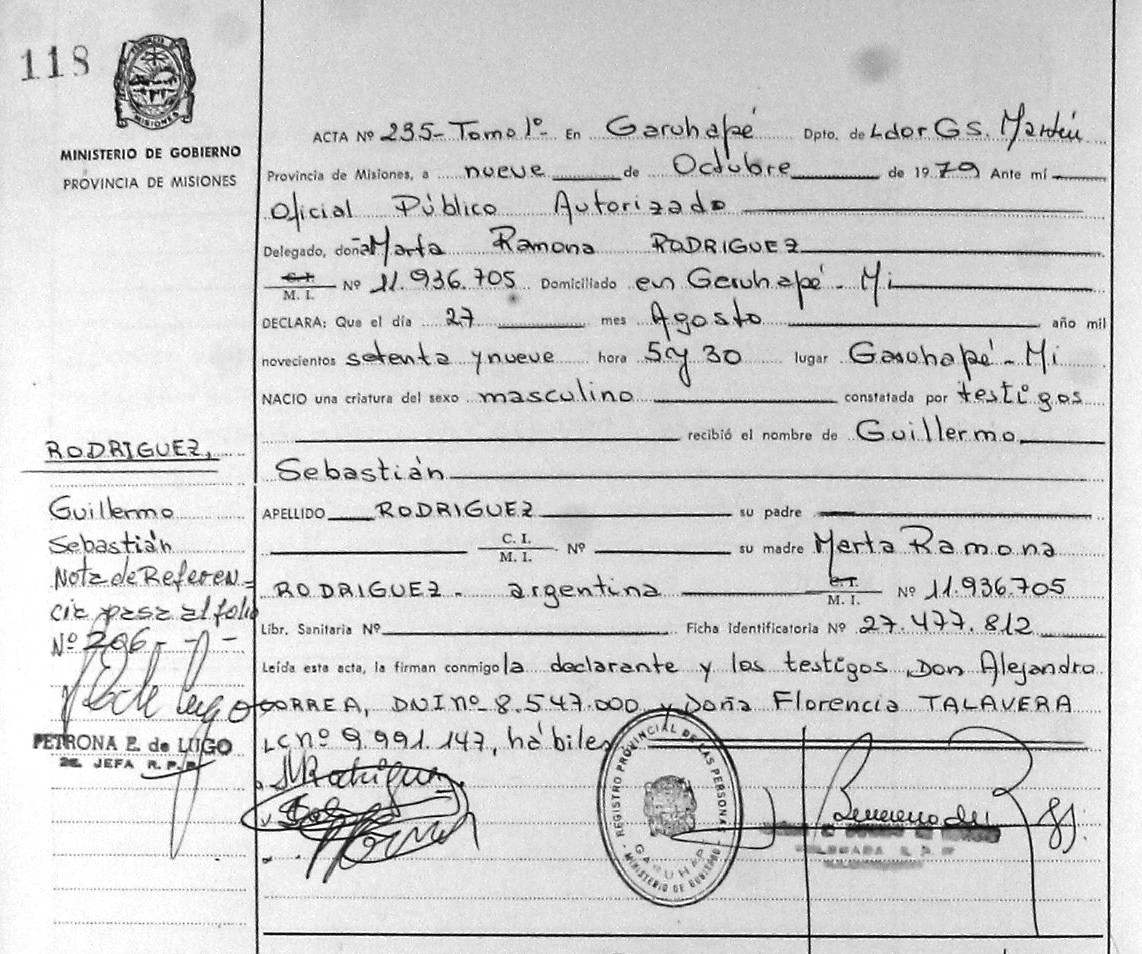 118
PROVINCIA DE MISIONES
MINISTERIO DE GOBIERNO
PROVINCIA DE MISIONES
RODRIGUEZ,
Guillermo
Sebastián
Nota de Referen-
cia pasa al folio
Nº 206- -
PETRONA E. de LUGO
JEFA R.P.P.
ACTA Nº 235- Tomo 1º- En Garuhapé Dpto. de Ldor Gs. Martín
Provincia de Misiones, a nueve de Octubre de 1979 Ante mí
Oficial Público Autorizado
Delegado, doña Marta Ramona RODRIGUEZ
C.I.
M. I. Nº 11.936.705 Domiciliado en Garuhapé - Mi
DECLARA: Que el día 27 mes Agosto año mil
novecientos setenta y nueve hora 5 y 30 lugar Garuhapé - Mi
NACIO una criatura del sexo masculino constatada por testigos
recibió el nombre de Guillermo
Sebastián
APELLIDO RODRIGUEZ su padre
C. I.
M. I. Nº su madre Marta Ramona
RODRIGUEZ - argentina C.I.
M. I. Nº 11.936.705
Libr. Sanitaria Nº Ficha Identificatoria Nº 27.477.812
Leída esta acta, la firman conmigo la declarante y los testigos Don Alejandro
CORREA, DNI nº 8.547.000 y Doña Florencia TALAVERA
LC nº 9.991.147, hábiles
MRodriguez
REGISTRO PROVINCIAL DE LAS PERSONAS
GARUHAPE
- MINISTERIO DE GOBIERNO -